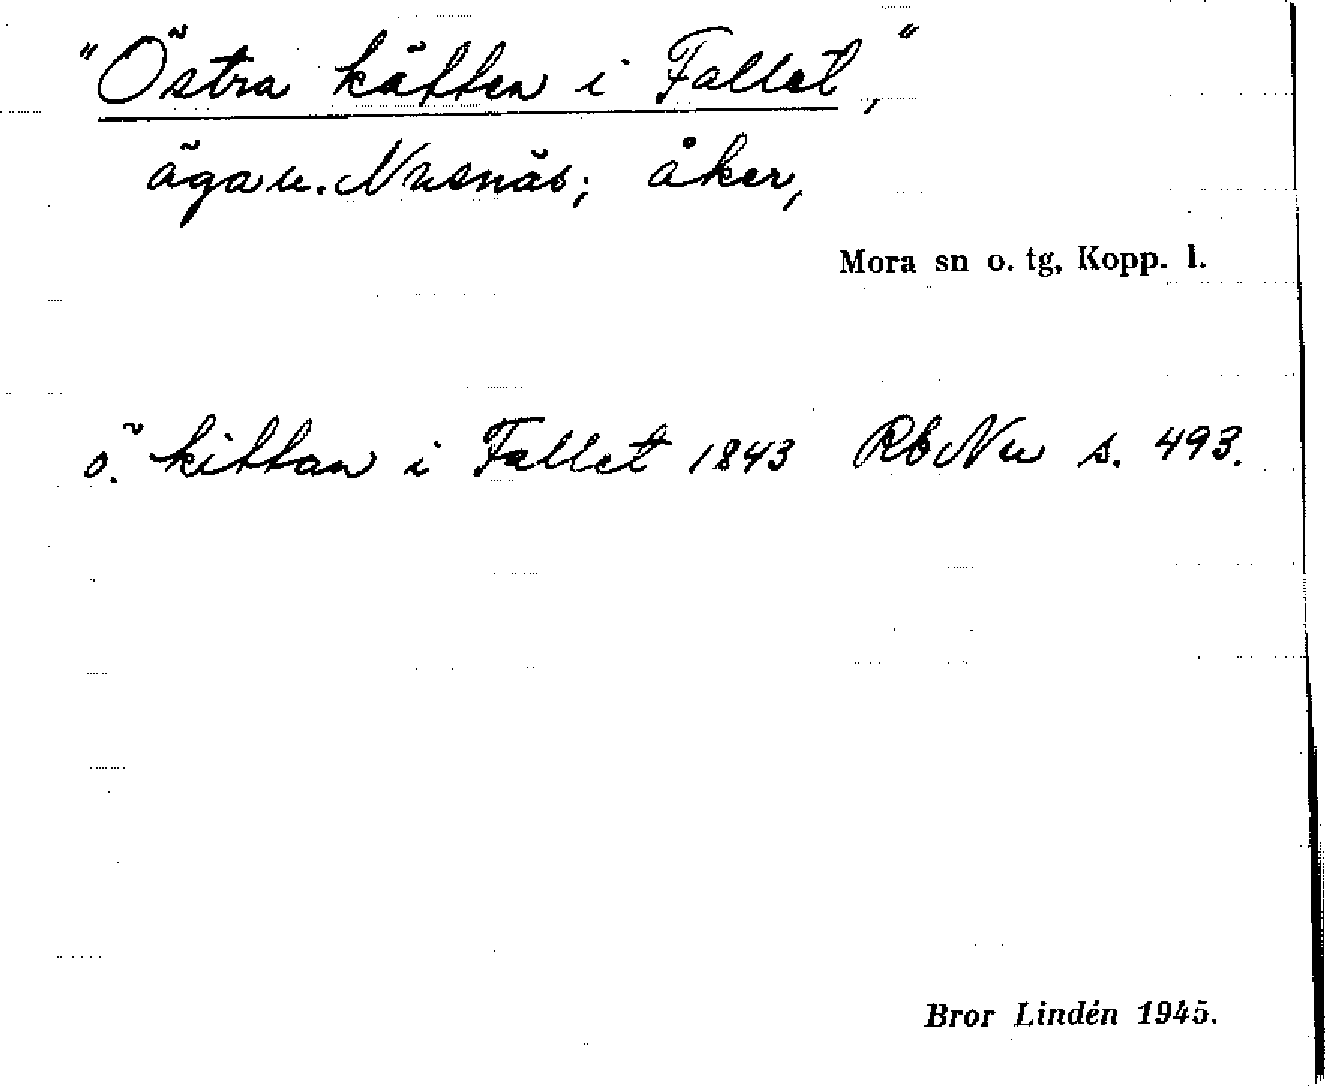 "Östra kätten i Fallet,"
ägau. Nusnäs; åker,
Mora sn o. tg, Kopp. l.
ö. kittan i Fallet 1843 RbNu s. 493.
Bror Lindén 1945.